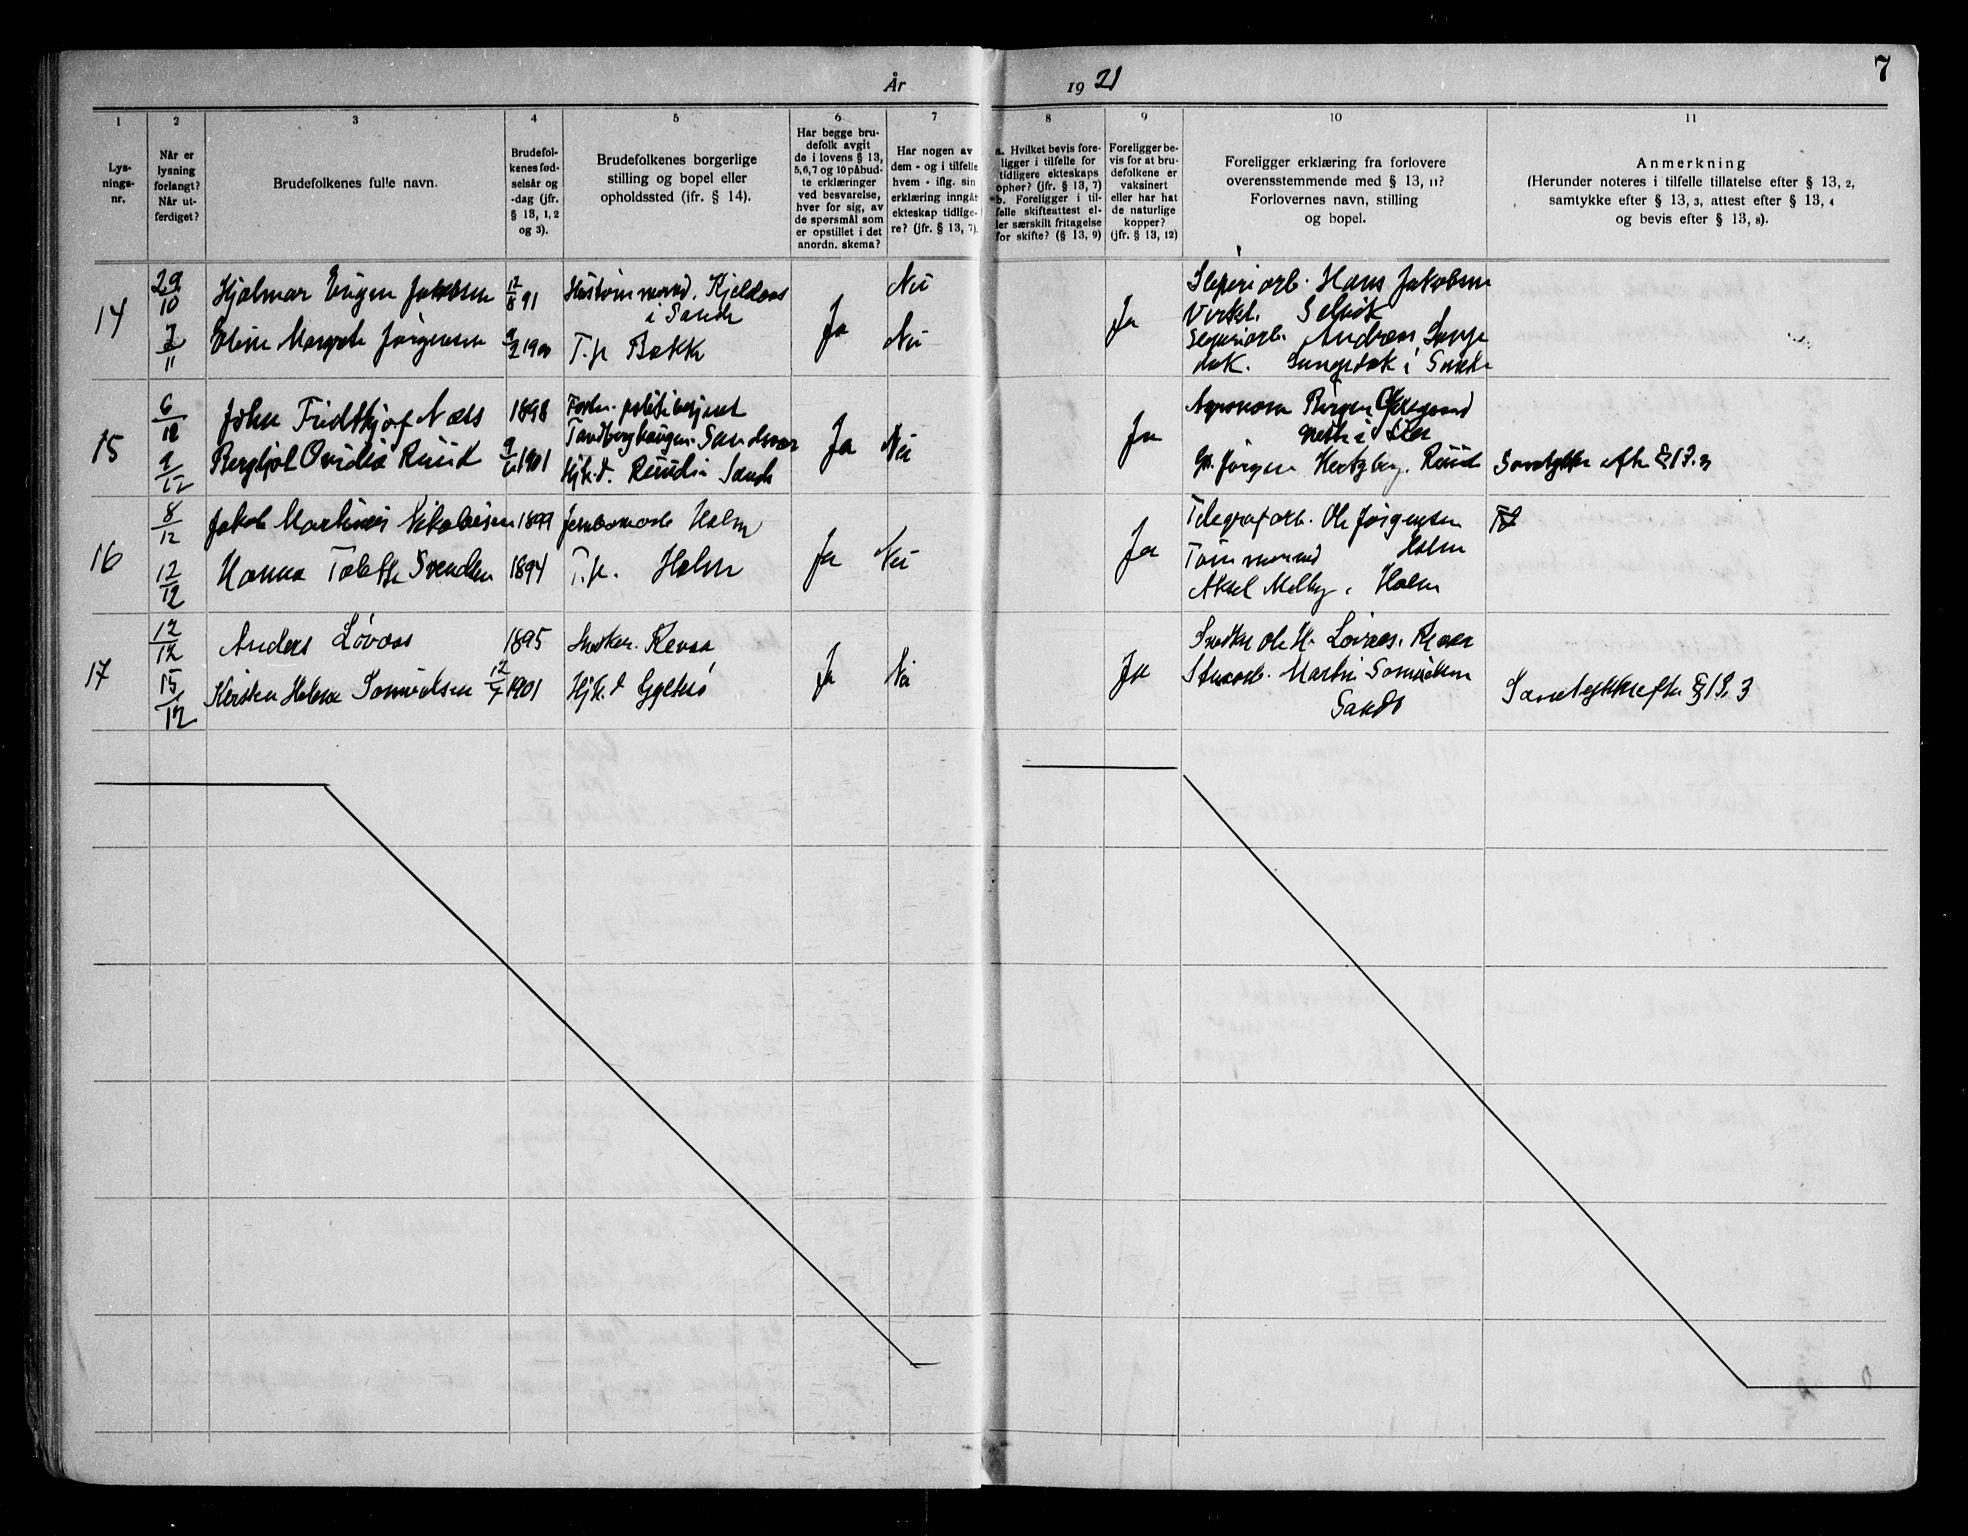 År 1921
7
1 2 3 4 5 6 7 8 9 10 11
Lys-
nings-
nr.
Når er
lysning
forlangt?
Når ut-
ferdiget?
Brudefolkenes fulle navn.
Brudefol-
kenes fød-
selsår og
-dag (jfr.
§ 13, 1, 2
og 3).
Brudefolkenes borgerlige
stilling og bopel eller
opholdssted (jfr. § 14).
Har begge bru-
defolk avgit
de i lovens § 13,
5,6,7 og 10 påbud-
te erklæringer
ved besvarelse,
hver for sig, av
de spørsmål som
er opstillet i det
anordn. skema?
Har nogen av
dem - og i tilfelle
hvem - iflg. sin
erklæring inngåt
ekteskap tidlige-
re? (jfr. § 13, 7).
a. Hvilket bevis fore-
ligger i tilfelle for
tidligere ekteskaps
ophør? (jfr. § 13, 7)
b. Foreligger i til-
felle skifteattest el-
ler særskilt fritagelse
for skifte? (§ 13, 9)
Foreligger be-
vis for at bru-
defolkene er
vaksinert
eller har hat
de naturlige
kopper?
(jfr. § 13, 12)
Foreligger erklæring fra forlovere
overensstemmende med § 13, 11?
Forlovernes navn, stilling
og bopel.
Anmerkning
(Herunder noteres i tilfelle tillatelse efter § 13, 2,
samtykke efter § 13, 3, attest efter § 13, 4
og bevis efter § 13, 8).
14
29/10
Hjalmar Eugen Jakobsen
12/8 91
Kjeldaas
i Sande
Ja
Nei
Ja
Sliperiarb. Hans Jakobsen
Selvik
Margrete Jørgensen
2 1900
T.p. Bekk
Nei
Andreas
i Sande
15
6/12
John Fridthjof Næss
1898
Ja
Nei
Ja
Agronom Birger
9/12
Bergljot Ovidia Ruud
9/6 1901
Hjk.d. Ruud i Sande
Gb. Jørgen Hertzberg. Ruud
Samtykke efter § 13.3
16
8/12
Jakob Martinius
Holm
Ja
Nei
Ja
Telegrafarb. Ole Jørgensen
Holm
12/12
Hanna Svendsen
1894
T.p. Holm
Tømmermand
Aksel Melby, Holm
17
12/12
Anders Løvaas
1895
Snekker. Revaa
Ja
Nei
Ja
Snekker Ole H. Løvaas. Revaa
15/12
Kirsten Helene Samuelsen
12/7 1901
Hjk.d
Martin Samuelsen
Sande
Samtykke efter § 13, 3